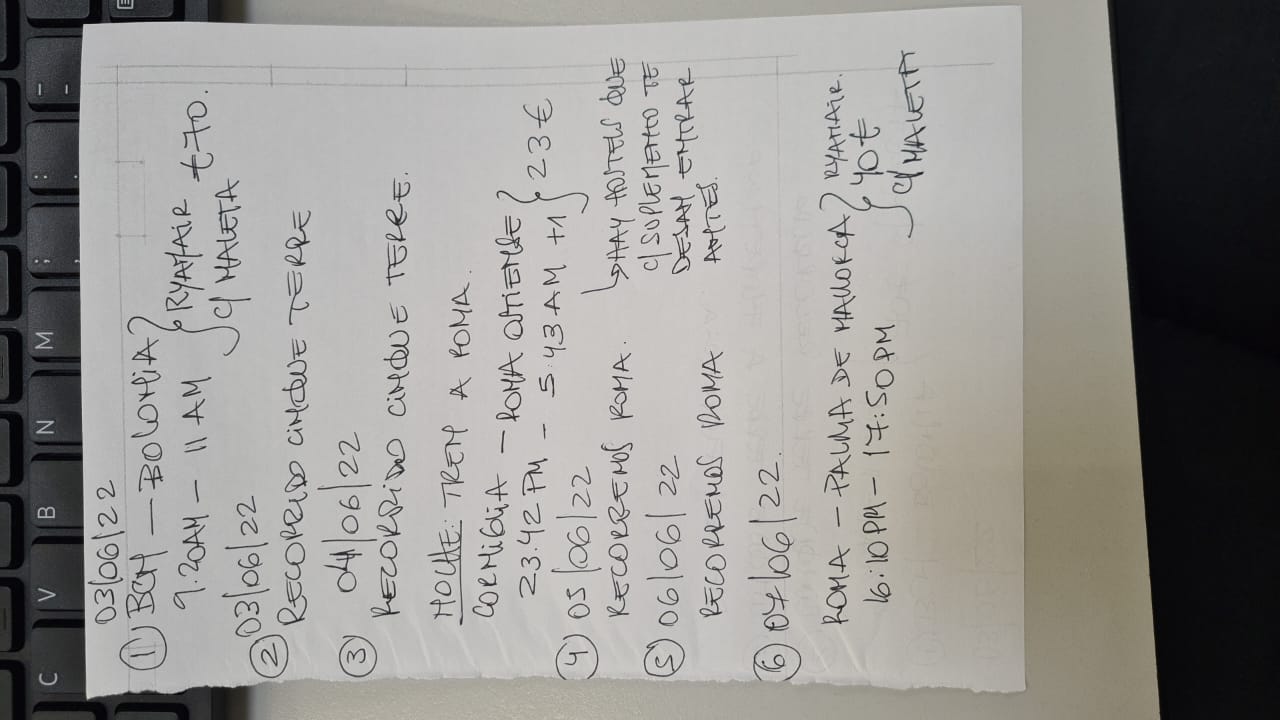 C V B N M ; , : . - _
03/06/22
① BCN — BOLONIA
9.20AM — 11 AM
RYANAIR €70.
C/ MALETA
② 03/06/22
RECORRIDO CINQUE TERRE
③ 04/06/22
RECORRIDO CINQUE TERRE.
NOCHE: TREN A ROMA.
CORNIGLIA — ROMA OSTIENSE
23.42 PM — 5:43 AM +1
23€
④ 05/06/22
RECORREMOS ROMA.
↳ HAY HOSTELS QUE
C/ SUPLEMENTO TE
DEJAN ENTRAR
ANTES.
⑤ 06/06/22
RECORREMOS ROMA
⑥ 07/06/22.
ROMA — PALMA DE MALLORCA
16:10PM — 17:50PM
RYANAIR.
40€
C/ MALETA